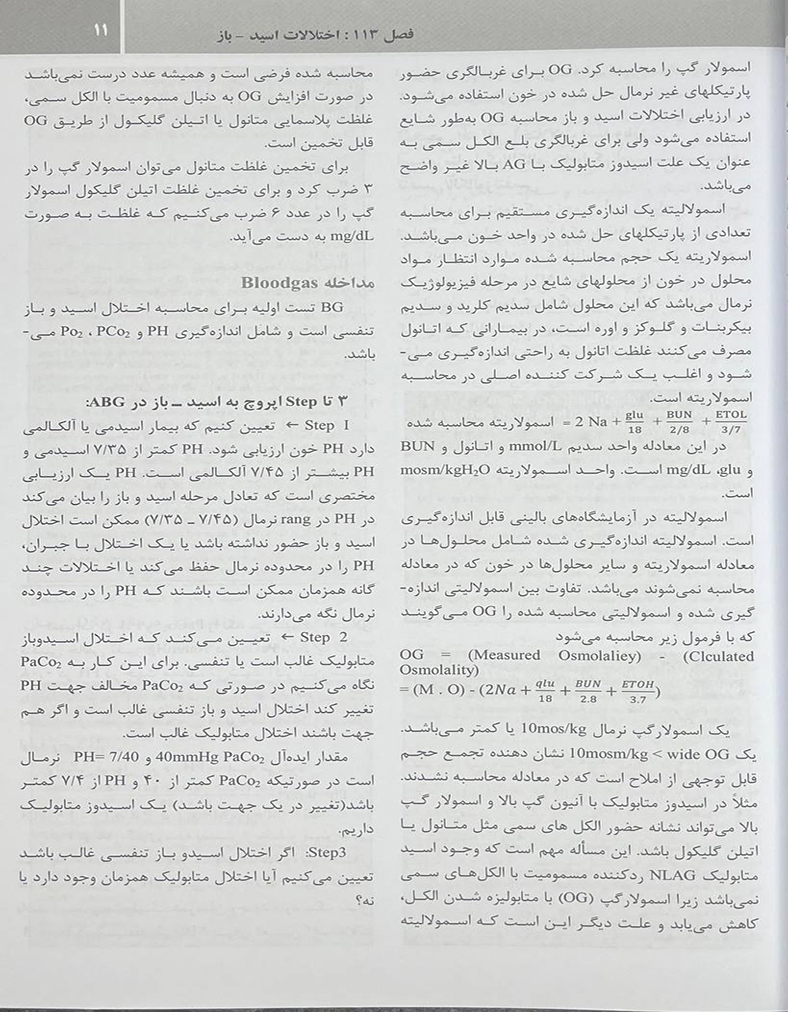 فصل ۱۱۳ : اختلالات اسید - باز
۱۱
اسمولار گپ را محاسبه کرد. OG برای غربالگری حضور
پارتیکلهای غیر نرمال حل شده در خون استفاده می‌شود.
در ارزیابی اختلالات اسید و باز محاسبه OG به‌طور شایع
استفاده می‌شود ولی برای غربالگری بلع الکل سمی به
عنوان یک علت اسیدوز متابولیک با AG بالا غیر واضح
می‌باشد.
اسمولالیته یک اندازه‌گیری مستقیم برای محاسبه
تعدادی از پارتیکلهای حل شده در واحد خون می‌باشد.
اسمولاریته یک حجم محاسبه شده موارد انتظار مواد
محلول در خون از محلولهای شایع در مرحله فیزیولوژیک
نرمال می‌باشد که این محلول شامل سدیم کلرید و سدیم
بیکربنات و گلوکز و اوره است، در بیمارانی که اتانول
مصرف می‌کنند غلظت اتانول به راحتی اندازه‌گیری می-
شود و اغلب یک شرکت کننده اصلی در محاسبه
اسمولاریته است.
اسمولاریته محاسبه شده = 2 Na + glu/18 + BUN/2/8 + ETOL/3/7
در این معادله واحد سدیم mmol/L و اتانول و BUN
و glu، mg/dL است. واحد اسمولاریته mosm/kgH₂O
است.
اسمولالیته در آزمایشگاه‌های بالینی قابل اندازه‌گیری
است. اسمولالیته اندازه‌گیری شده شامل محلول‌ها در
معادله اسمولاریته و سایر محلول‌ها در خون که در معادله
محاسبه نمی‌شوند می‌باشد. تفاوت بین اسمولالیتی اندازه-
گیری شده و اسمولالیتی محاسبه شده را OG می‌گویند
که با فرمول زیر محاسبه می‌شود
OG = (Measured Osmolaliey) - (Clculated
Osmolality)
= (M . O) - (2Na + glu/18 + BUN/2.8 + ETOH/3.7)
یک اسمولارگپ نرمال 10mos/kg یا کمتر می‌باشد.
یک 10mosm/kg < wide OG نشان دهنده تجمع حجم
قابل توجهی از املاح است که در معادله محاسبه نشدند.
مثلاً در اسیدوز متابولیک با آنیون گپ بالا و اسمولار گپ
بالا می‌تواند نشانه حضور الکل های سمی مثل متانول یا
اتیلن گلیکول باشد. این مسأله مهم است که وجود اسید
متابولیک NLAG ردکننده مسمومیت با الکل‌های سمی
نمی‌باشد زیرا اسمولارگپ (OG) با متابولیزه شدن الکل،
کاهش می‌یابد و علت دیگر این است که اسمولالیته
محاسبه شده فرضی است و همیشه عدد درست نمی‌باشد
در صورت افزایش OG به دنبال مسمومیت با الکل سمی،
غلظت پلاسمایی متانول یا اتیلن گلیکول از طریق OG
قابل تخمین است.
برای تخمین غلظت متانول می‌توان اسمولار گپ را در
۳ ضرب کرد و برای تخمین غلظت اتیلن گلیکول اسمولار
گپ را در عدد ۶ ضرب می‌کنیم که غلظت به صورت
mg/dL به دست می‌آید.
مداخله Bloodgas
BG تست اولیه برای محاسبه اختلال اسید و باز
تنفسی است و شامل اندازه‌گیری PH و Po₂ ، PCo₂ می-
باشد.
۳ تا Step اپروچ به اسید ــ باز در ABG:
Step 1 ← تعیین کنیم که بیمار اسیدمی یا آلکالمی
دارد PH خون ارزیابی شود. PH کمتر از ۷/۳۵ اسیدمی و
PH بیشتر از ۷/۴۵ آلکالمی است. PH یک ارزیابی
مختصری است که تعادل مرحله اسید و باز را بیان می‌کند
در PH در rang نرمال (۷/۴۵ ــ ۷/۳۵) ممکن است اختلال
اسید و باز حضور نداشته باشد یا یک اختلال با جبران،
PH را در محدوده نرمال حفظ می‌کند یا اختلالات چند
گانه همزمان ممکن است باشند که PH را در محدوده
نرمال نگه می‌دارند.
Step 2 ← تعیین می‌کند که اختلال اسیدوباز
متابولیک غالب است یا تنفسی. برای این کار به PaCo₂
نگاه می‌کنیم در صورتی که PaCo₂ مخالف جهت PH
تغییر کند اختلال اسید و باز تنفسی غالب است و اگر هم
جهت باشند اختلال متابولیک غالب است.
مقدار ایده‌آل 40mmHg PaCo₂ و PH= 7/40 نرمال
است در صورتیکه PaCo₂ کمتر از ۴۰ و PH از ۷/۴ کمتر
باشد(تغییر در یک جهت باشد) یک اسیدوز متابولیک
داریم.
Step3: اگر اختلال اسیدو باز تنفسی غالب باشد
تعیین می‌کنیم آیا اختلال متابولیک همزمان وجود دارد یا
نه؟